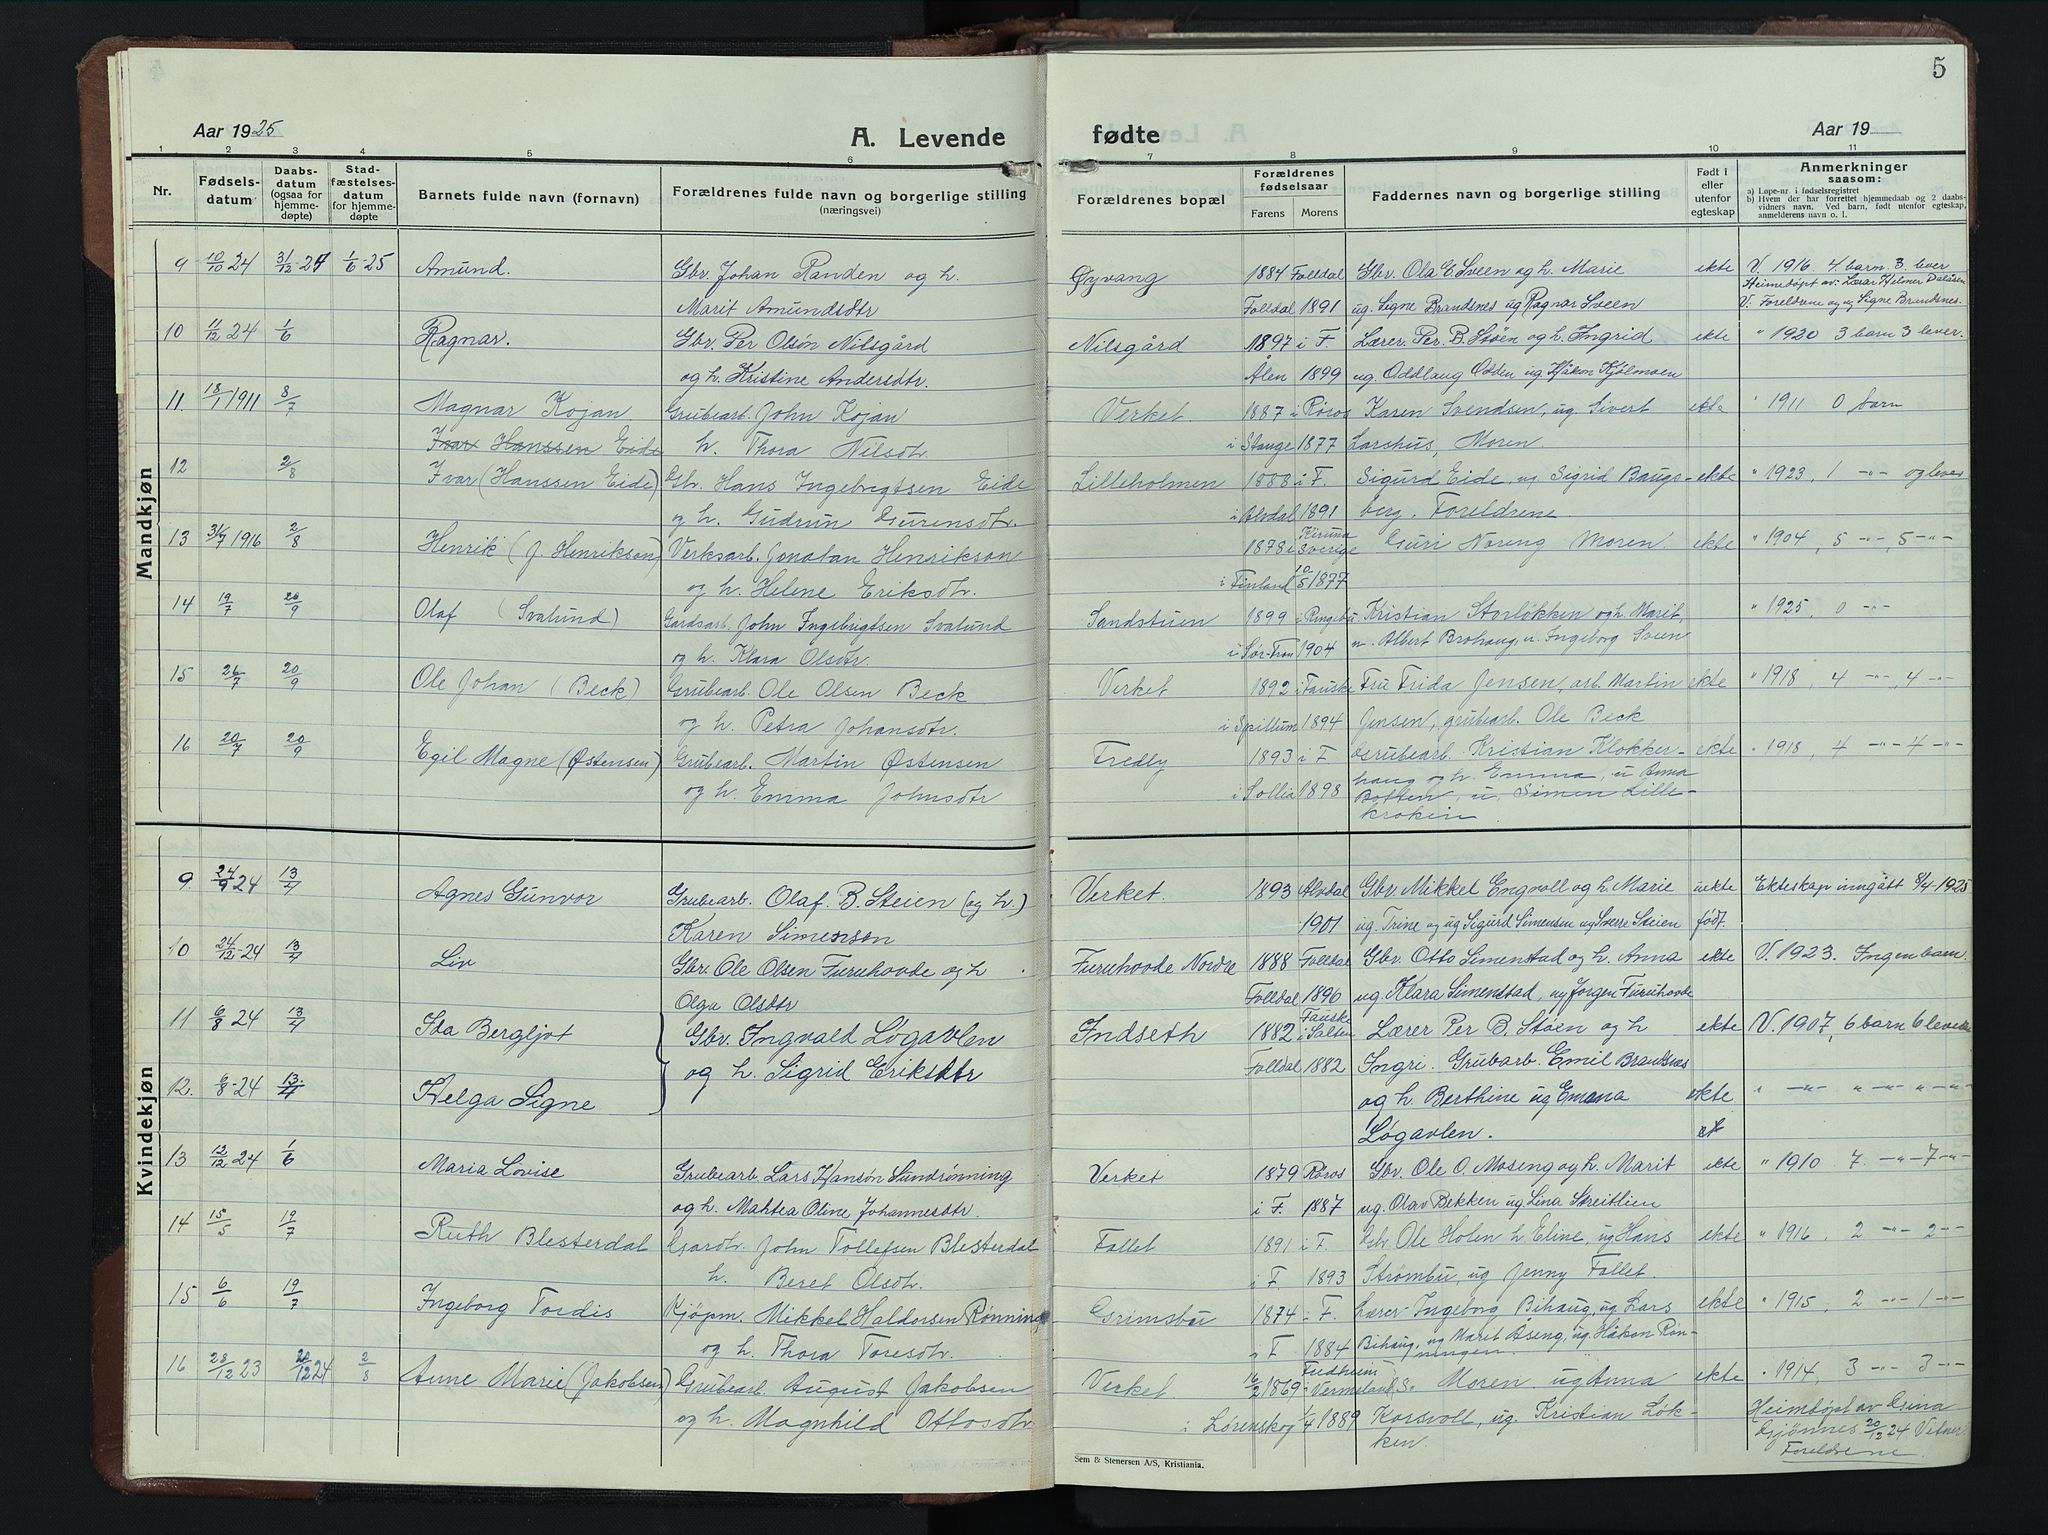 5
Aar 1925
A. Levende
fødte
Aar 19
1 2 3 4 5 6 7 8 9 10 11
Nr.
Fødselsdatum
Daabsdatum (ogsaa for hjemmedøpte)
Stadfæstelsesdatum for hjemmedøpte
Barnets fulde navn (fornavn)
Forældrenes fulde navn og borgerlige stilling
(næringsvei)
Forældrenes bopæl
Forældrenes fødselsaar
Farens Morens
Faddernes navn og borgerlige stilling
Født i eller utenfor egteskap
Anmerkninger saasom:
a) Løpe-nr. i fødselsregistret
b) Hvem der har forrettet hjemmedaab og 2 daabsvidners navn. Ved barn, født utenfor egteskap, anmelderens navn o. l.
Mandkjøn
9 10/10 24 31/12-24 1/6-25 Amund. Gbr. Johan Randen og h. Øyvang 1884 Folldal Gbr. Ola E. Sveen og h. Marie ekte V. 1916 4. barn. 3. lever
Heimedøpt av: Lærar Helmer Dalåsen
Marit Amundsdtr Folldal 1891 ug. Signe Brandsnes ug Ragnar Sveen V: Foreldrene og ug Signe Brendsnes.
10 11/12 24 1/6 Ragnar. Gbr. Per Olsön Nilsgård Nilsgård 1897 i F. Lærer. Per. B. Støen og h. Ingrid ekte " 1920 3 barn 3 lever.
og h. Kristine Andersdtr. Ålen 1899 ug. Oddlaug Odden ug Håkon Kjølmoen
11. 18/1 1911 8/7 Magnar Kojan Grubearb. John Kojan Verket 1887 i Røros Karen Svendsen, ug. Sivert ekte " 1911 0 barn
Ivar Hanssen Eide h. Thora Nilsdtr. i Stange 1877 Larshus, Moren.
12 2/8 Ivar (Hanssen Eide) Gbr. Hans Ingebrigtsen Eide Lilleholmen 1888 i F. Sigurd Eide, ug Sigrid Baugs- ekte " 1923, 1 -"- og lever
og h. Gudrun Gurensdtr. i Alvdal 1891 berg. Foreldrene.
13 31/7 1916 2/8 Henrik (J. Henrikson) Verksarb. Jonatan Henrikson 1878 i Kiruna Sverige Guri Noreng Moren. ekte " 1904, 5 -"-, 5 -"-
og h. Helene Eriksdtr. i Finland 10/5 1877
14 19/7 20/9 Olaf (Svalund) Gardsarb. John Ingebrigtsen Svalund Sandstuen 1899 i Ringebu Kristian Storløkken og h. Marit, " 1925, 0 -"-
og h. Klara Olsdtr. i Sør-Fron 1904 u. Albert Brohaug, u. Ingeborg Sveen
15 26/7 20/9 Ole Johan (Beck) Grubearb. Ole Olsen Beck Verket 1892 i Fauske Fru Frida Jensen, arb. Martin ekte " 1918, 4 -"-, 4 -"-
og h. Petra Johansdtr. i Spillum 1894 Jensen, grubearb. Ole Beck
16 20/7 20/9 Egil Magne (Østensen) Grubearb. Martin Østensen Fredly 1893 i F Grubearb. Kristian Klokker- ekte " 1918, 4 -"- 4 -"-
haug og h. Emma, u Anna
og h. Emma Johnsdtr i Sollia 1898 Botten, u. Simen Lille-
krokin
Kvindekjøn
9. 24/9 24 13/4 Agnes Gunvor Grubearb. Olaf. B. Steien (og h.) Verket. 1893 Alvdal Gbr. Mikkel Engvoll og h. Marie uekte Ekteskap inngått 8/4-1925
Karen Simenson 1901 ug. Trine og ug Sigurd Simensen ug Sverre Steien født.
10 24/12-24 13/4 Liv Gbr. Ole Olsen Furuhovde og h. Furuhovde Nordre 1888 Folldal Gbr. Otto Simenstad og h. Anna ekte V. 1923. Ingen barn.
Olga Olsdtr Folldal 1896 ug. Klara Simenstad, ug Jørgen Furuhovde
11 6/8 24 13/4 Ida Bergljot Gbr. Ingvald Løgavlen Indseth 1882 Fauske i Salten Lærer Per B. Støen og h ekte V. 1907, 6 barn 6 levende
og h. Sigrid Eriksdtr Folldal 1882 Ingri. Grubarb. Emil Brandsnes
12. 6/8-24 13/4 Helga Signe og h. Berthine ug Emma ekte " -"- " " " "
Løgavlen.
13 12/12 24 1/6 Maria Lovise Grubearb. Lars Hansön Sundrønning Verket 1879 Røros Gbr. Ole O. Moseng og h. Marit ekte " 1910 7. -"- 7 -"-
og h. Mahtea Oline Johannesdtr. i F. 1887 ug. Olav Bekken ug Lina Streitlien
14 15/5 19/7 Ruth Blesterdal Gardbr. John Tollefsen Blesterdal Fallet 1891 i F. Gbr. Ole Holen h. Eline, ug Hans ekte " 1916, 2 -"- 2 -"-
h. Beret Olsdtr. i F. 1893 Strømbu, ug Jenny Fallet.
15 6/6 19/7 Ingeborg Tordis Kjøpm. Mikkel Haldorsen Rønning Grimsbu 1874 i F. Lærer Ingeborg Bihaug, ug. Lars ekte " 1915, 2 -"- 1 -"-
og h. Thora Toresdtr. i F 1884 Bihaug, ug Marit Åseng, ug. Håkon Røn-
ningen.
16 28/12 23 20/12 24 2/8 Anne Marie (Jakobsen) Grubearb. August Jakobsen Verket 16/2 1869 i Vermeland, S. Moren. ug Anna ekte " 1914, 3 -"- 3 -"-
og h. Magnhild Ottosdtr i Lørenskog 1/4 1889 Korsvolt, ug. Kristian Løk-
ken.
Heimdøpt av Gina
Gjønnes 20/12 24 Vitner
Foreldrene
Sem & Stenersen A/S, Kristiania.